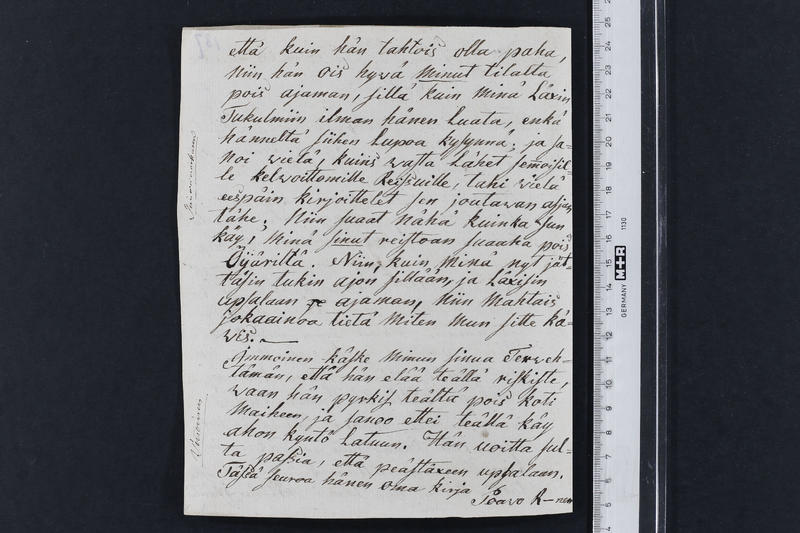 että kuin hän tahtois olla paha,
niin hän ois hywä minut tilalta
pois ajaman, sillä kuin minä Läxin
Tukulmiin ilman hänen Luata, enkä
hänneltä siihen Lupoa kysynnä; ja sa-
noi wielä, kuins wasta Lähet semoisil-
le kelwottomille Reissuille, tahi wielä
eespäin kirjoittelet sen joutawan asjan
tähe. Niin suaat nähä kuinka sun
käy, minä sinut reistoan suaaha pois
Öyäriltä. Niin, kuin minä nyt jät-
täisin tukin ajon sillään, ja Läxisin
upsalaan ajaman, niin mahtais
jokaainoa tietä miten mun sitte kä-
wis. —
Immoinen käske mimun sinua Terweh-
tämän, että hän elää teällä riskiste,
waan hän pyrkis teältä pois koti
Maiheen, ja sanoo ettei teällä käy
ahon kyntö Latuun. Hän uotta sul-
ta passia, että peästäxeen upsalaan.
Tässä seuroa hänen oma kirja
Poavo R—nen
1130
GERMANY M+R
25
24
23
22
21
20
19
18
17
16
15
14
13
12
11
10
9
8
7
6
5
4